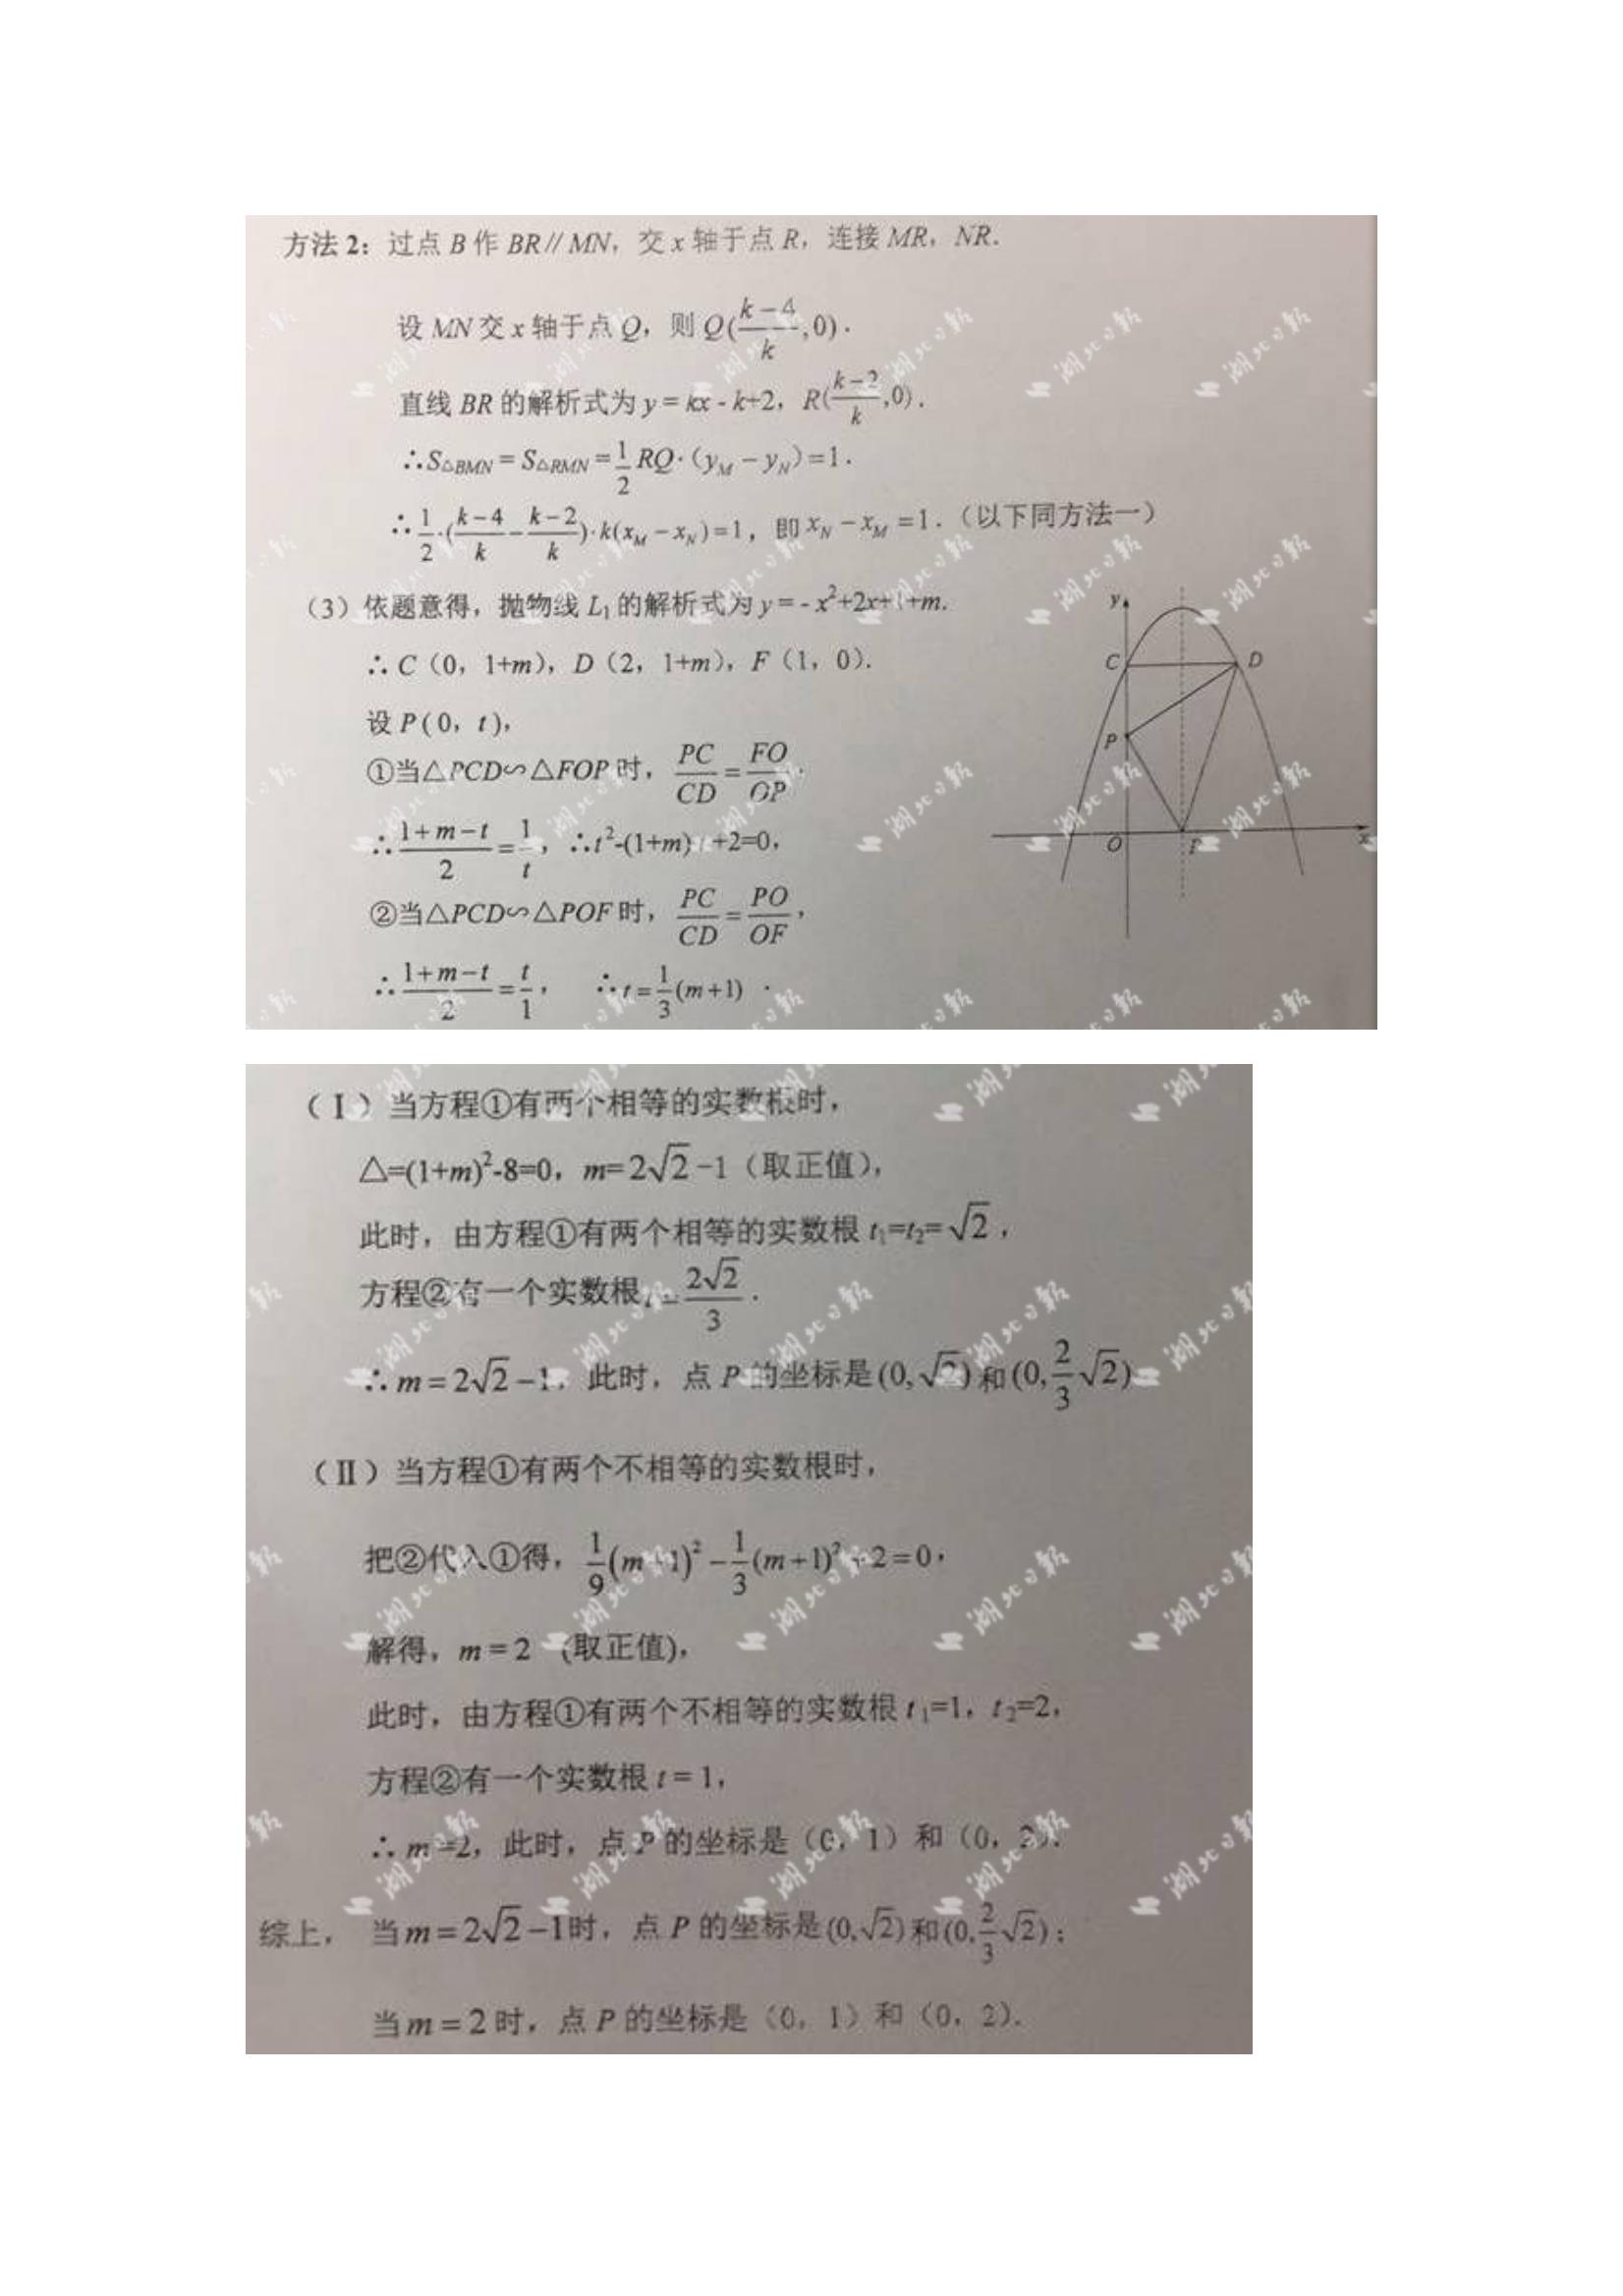 方法 2：过点 B 作 BR∥MN，交 x 轴于点 R，连接 MR，NR.
设 MN 交 x 轴于点 Q，则 Q(\frac{k-4}{k},0).
直线 BR 的解析式为 y = kx - k+2，R(\frac{k-2}{k},0).
∴S△BMN = S△RMN = \frac{1}{2} RQ·（y_M − y_N）=1.
∴\frac{1}{2}·(\frac{k-4}{k} − \frac{k-2}{k})·k(x_M − x_N)=1，即 x_N − x_M =1.（以下同方法一）
（3）依题意得，抛物线 L₁ 的解析式为 y = - x²+2x+1+m.
∴ C（0，1+m），D（2，1+m），F（1，0）.
设 P ( 0，t )，
①当△PCD∽△FOP 时，\frac{PC}{CD} = \frac{FO}{OP}.
∴\frac{1+m-t}{2} = \frac{1}{t}，∴t²-(1+m) t +2=0，
②当△PCD∽△POF 时，\frac{PC}{CD} = \frac{PO}{OF}，
∴\frac{1+m-t}{2} = \frac{t}{1}，∴t = \frac{1}{3}(m+1).
y
C
D
P
O
F
x
（Ⅰ）当方程①有两个相等的实数根时，
△=(1+m)²-8=0，m= 2√2 −1（取正值），
此时，由方程①有两个相等的实数根 t₁=t₂= √2，
方程②有一个实数根 t = \frac{2√2}{3}.
∴ m = 2√2 −1，此时，点 P 的坐标是 (0, √2) 和 (0, \frac{2}{3}√2)
（Ⅱ）当方程①有两个不相等的实数根时，
把②代入①得，\frac{1}{9}(m+1)² − \frac{1}{3}(m+1)² + 2 = 0，
解得，m = 2 (取正值)，
此时，由方程①有两个不相等的实数根 t ₁=1，t ₂=2，
方程②有一个实数根 t = 1，
∴ m =2，此时，点 P 的坐标是（0，1）和（0，2）.
综上， 当 m = 2√2 −1时，点 P 的坐标是 (0,√2) 和 (0,\frac{2}{3}√2)；
当 m = 2 时，点 P 的坐标是（0，1）和（0，2）.
湖北日报